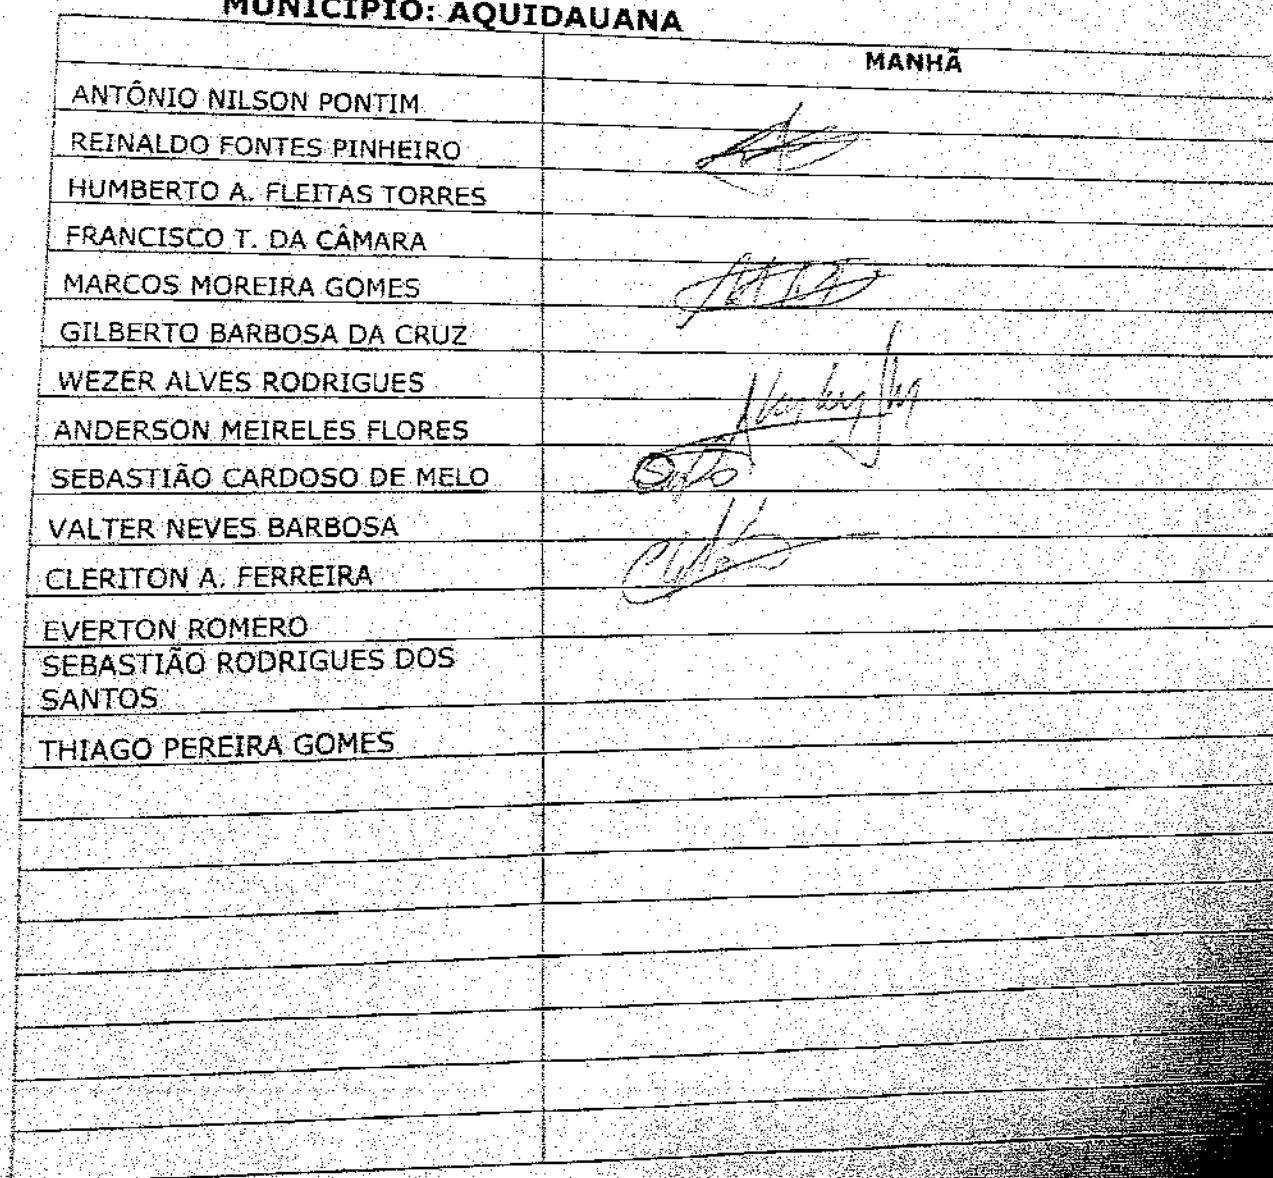 MUNICÍPIO: AQUIDAUANA
MANHÃ
ANTÔNIO NILSON PONTIM
REINALDO FONTES PINHEIRO
HUMBERTO A. FLEITAS TORRES
FRANCISCO T. DA CÂMARA
MARCOS MOREIRA GOMES
GILBERTO BARBOSA DA CRUZ
WEZER ALVES RODRIGUES
ANDERSON MEIRELES FLORES
SEBASTIÃO CARDOSO DE MELO
VALTER NEVES BARBOSA
CLERITON A. FERREIRA
EVERTON ROMERO
SEBASTIÃO RODRIGUES DOS
SANTOS
THIAGO PEREIRA GOMES